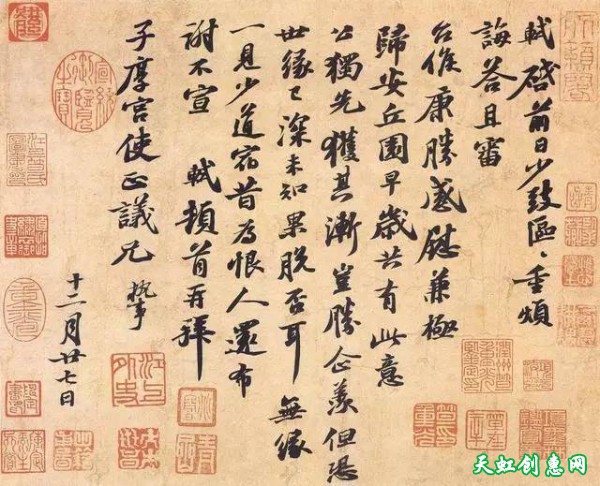 軾啓前日少致區〻重煩
誨答且審
台候康勝感慰兼極
歸安丘園早歲共有此意
公獨先獲其漸豈勝企羨但恐
世緣已深未知果脫否耳無緣
一見少道宿昔為恨人還布
謝不宣 軾頓首再拜
子厚宮使正議兄 執事
十二月廿七日
天虹创惠网